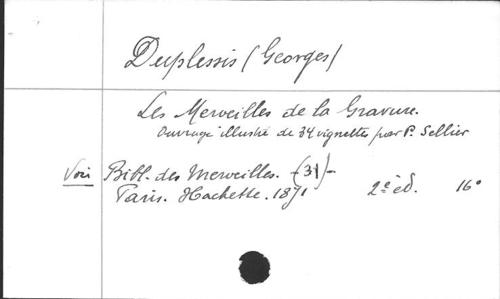 Duplessis (Georges)
Les Merveilles de la Gravure.
Ouvrage illustré de 34 vignettes par P. Sellier
Voir Bibl. des Merveilles. (31)-
Paris. Hachette. 1871 2e éd. 16°